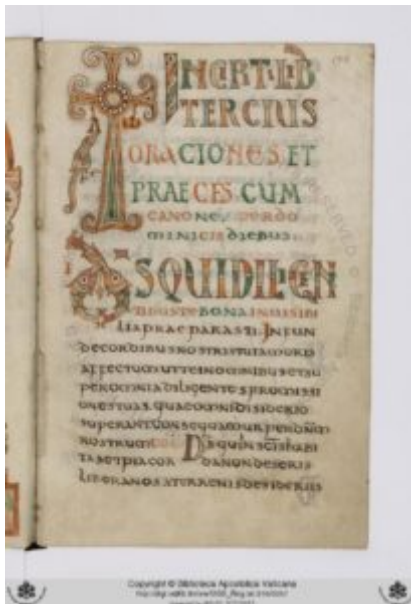 INCIPIT LIB
TERCIUS
ORACIONES ET
PRAECES CUM
CANONE PERDO
MINICIS DIEBUS
DS QUI DILIGEN
TIBUS TE BONA INUISIBI
LIA PRAEPARASTI. INFUN
DE CORDIBUS NOSTRIS TUI AMORIS
AFFECTUM UT TE IN OMNIBUS ET SU
PER OMNIA DILIGENTES PROMISSI
ONES TUAS QUAE OMNI DISIDERIO
SUPERANT CONSEQUAMUR PER DNM
NOSTRUM DS QUI IN SCIS HABI
TAS ET PIA COR DA NON DESERIS
LIBERA NOS A TERRENIS DESIDERIIS
Copyright © Biblioteca Apostolica Vaticana